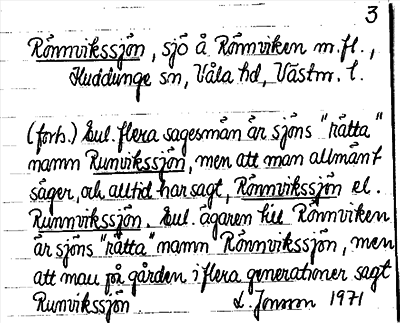 3
Rönnvikssjön, sjö å Rönnviken m.fl.,
Huddunge sn, Våla hd, Västm. l.
(forts.) Enl. flera sagesmän är sjöns "rätta"
namn Runvikssjön, men att man allmänt
säger, och alltid har sagt, Rönnvikssjön el.
Runnvikssjön. Enl. ägaren till Rönnviken
är sjöns "rätta" namn Rönnvikssjön, men
att man på gården i flera generationer sagt
Runvikssjön
L. Jonson 1971